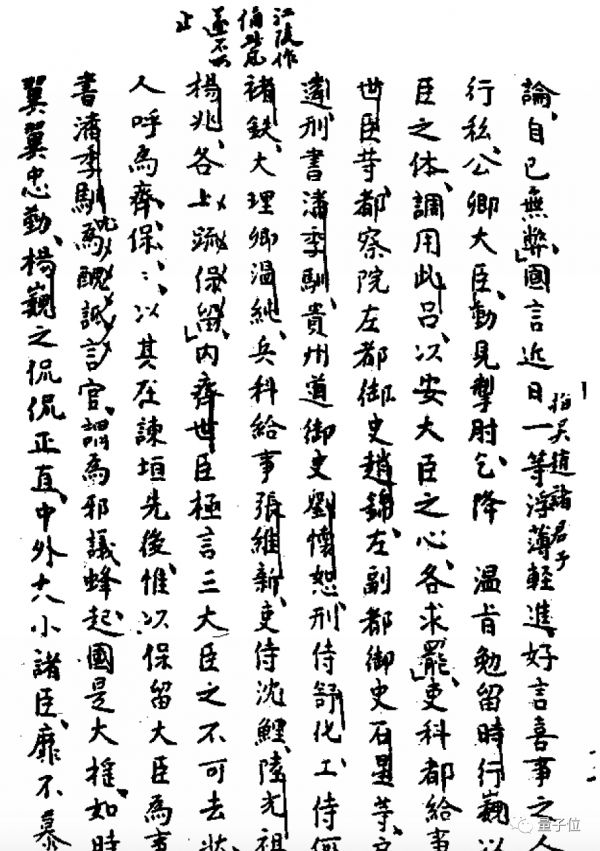 江陵作
俑此風
遂不可
止
論、自已無弊、國言近日一等浮薄輕進、好言喜事之人
指吳趙諸君子
行私、公卿大臣、動見掣肘、乞降 溫旨勉留時行巍以
臣之体、調用此吕、以安大臣之心、各求罷、吏科都給事
世臣等、都察院左都御史趙錦、左副都御史石星等、
遴、刑書潘季馴貴州道御史劉懷恕、刑侍舒化、工侍何
褚鈇、大理卿溫純、兵科給事張維新、吏侍沈鯉、陸光祖
楊兆、各上疏保留、內齊世臣極言三大臣之不可去狀
人呼為齊保、以其歷諫垣先後、惟以保留大臣為事
書潘季馴為醜詆言官、謂為邪議蜂起、國是大搖、如時
翼翼忠勤、楊巍之侃侃正直、中外大小諸臣、靡不暴
量子位